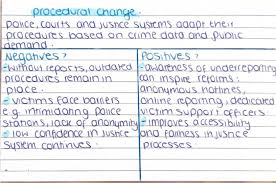 procedural change.
police, courts and justice systems adapt their
procedures based on crime data and public
demand.
Negatives:
-without reports, outdated
procedures remain in
place.
-victims face barriers
e.g. intimidating police
stations, lack of anonymity
-low confidence in justice
system continues.
Positives:
-awareness of underreporting
can inspire reforms:
anonymous hotlines,
online reporting, dedicated
victim support officers.
-improves accessibility
and fairness in justice
processes